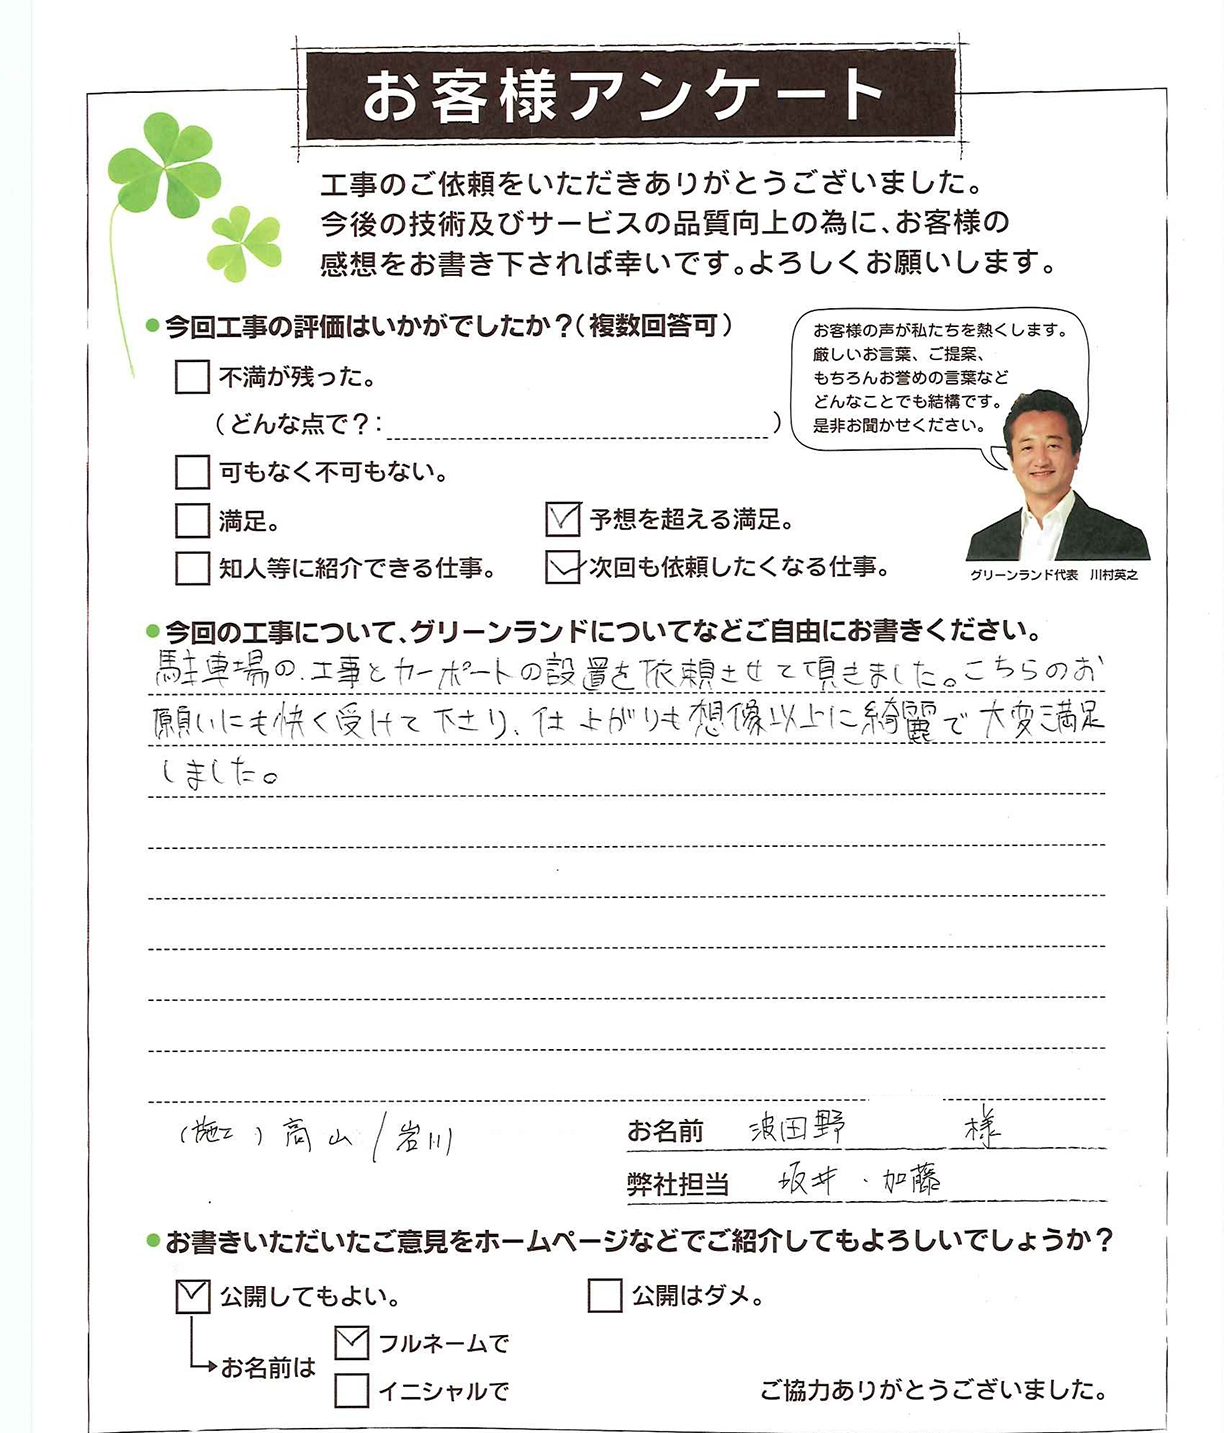 お客様アンケート
工事のご依頼をいただきありがとうございました。
今後の技術及びサービスの品質向上の為に、お客様の
感想をお書き下されば幸いです。よろしくお願いします。
●今回工事の評価はいかがでしたか？（複数回答可）
不満が残った。
（どんな点で？：　）
可もなく不可もない。
満足。
予想を超える満足。
知人等に紹介できる仕事。
次回も依頼したくなる仕事。
お客様の声が私たちを熱くします。
厳しいお言葉、ご提案、
もちろんお誉めの言葉など
どんなことでも結構です。
是非お聞かせください。
グリーンランド代表　川村英之
●今回の工事について、グリーンランドについてなどご自由にお書きください。
駐車場の、工事とカーポートの設置を依頼させて頂きました。こちらのお
願いにも快く受けて下さり、仕上がりも想像以上に綺麗で大変満足
しました。
（施工）高山/岩川
お名前　波田野　様
弊社担当　坂井・加藤
●お書きいただいたご意見をホームページなどでご紹介してもよろしいでしょうか？
公開してもよい。
公開はダメ。
お名前は
フルネームで
イニシャルで
ご協力ありがとうございました。